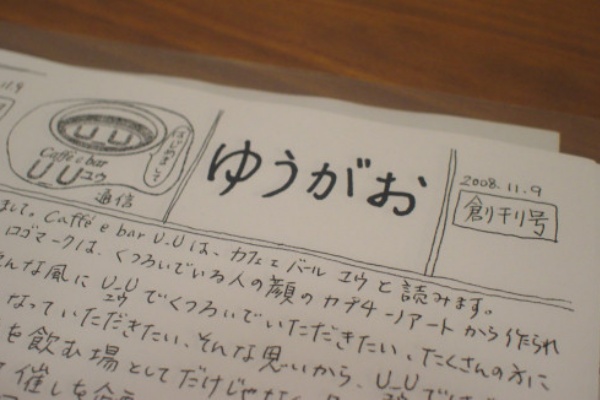 11.9
はじめまして
U U
Caffé e bar
U U ユウ
通信
ゆうがお
2008.11.9
創刊号
まして。Caffé e bar U_Uは、カフェ バール ユウ と読みます。
ロゴマークは、くつろいでいる人の顔のカプチーノアートから作られ
んな風に U_U ユウ でくつろいでいただきたい、たくさんの方に
なっていただきたい、そんな思いから、U_U
を飲む場としてだけじゃな
催しを